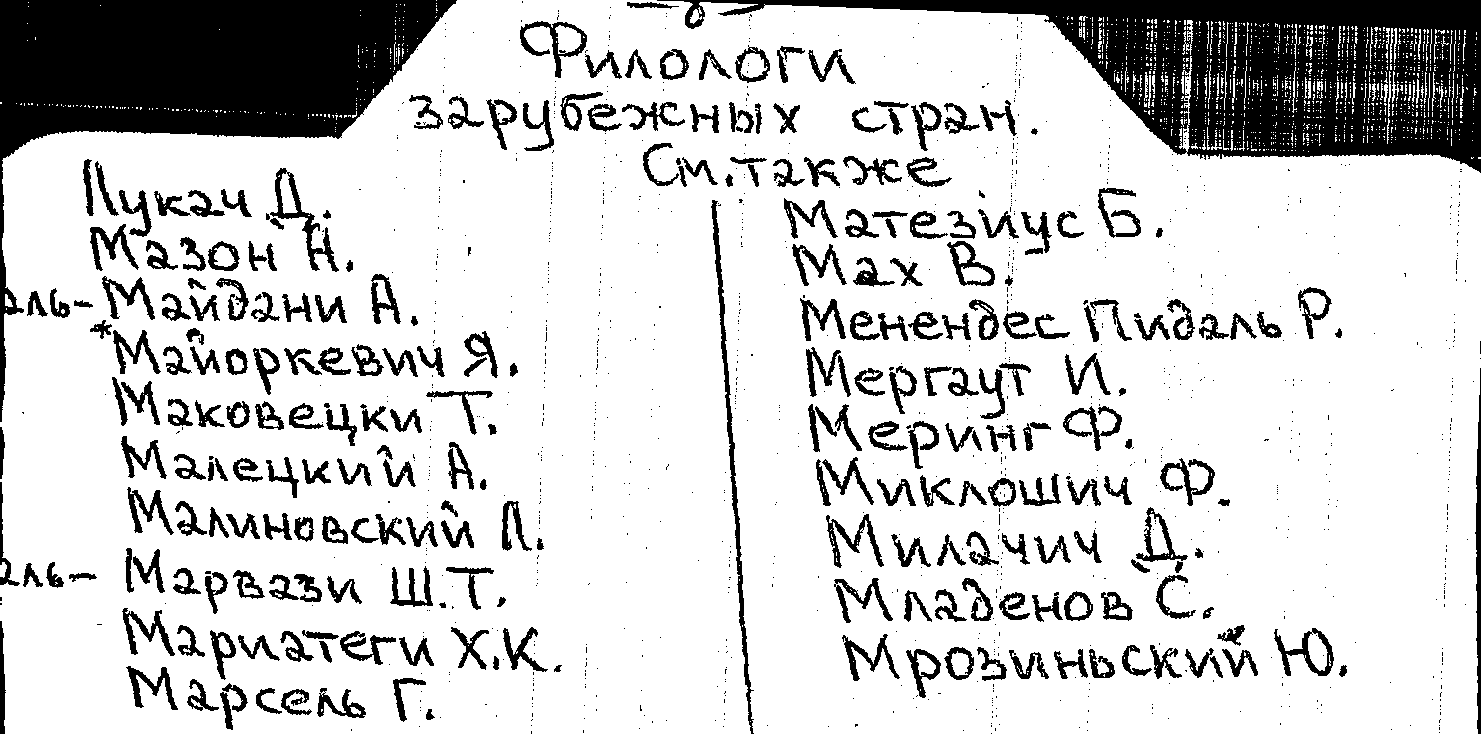 — 8 —
Филологи
зарубежных стран.
См. также
Лукач Д.
Мазон Н.
аль- Майдани А.
*Майоркевич Я.
Маковецки Т.
Малецкий А.
Малиновский Л.
аль- Марвази Ш.Т.
Мариатеги Х.К.
Марсель Г.
Матезиус Б.
Мах В.
Менендес Пидаль Р.
Мергаут И.
Меринг Ф.
Миклошич Ф.
Милачич Д.
Младенов С.
Мрозиньский Ю.